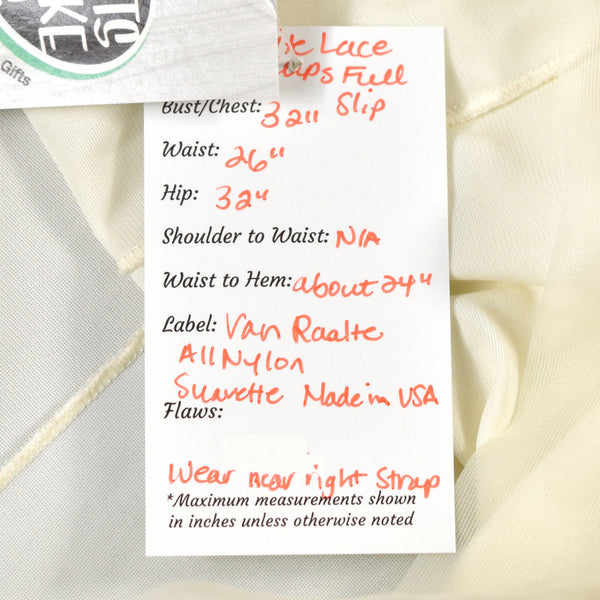 TY
KE
Gifts
Lace
Full
Slip
Bust/Chest: 32"
Waist: 26"
Hip: 32"
Shoulder to Waist: N/A
Waist to Hem: about 24"
Label: Van Raalte
All Nylon
Suavette Made in USA
Flaws:
Wear near right strap
*Maximum measurements shown
in inches unless otherwise noted